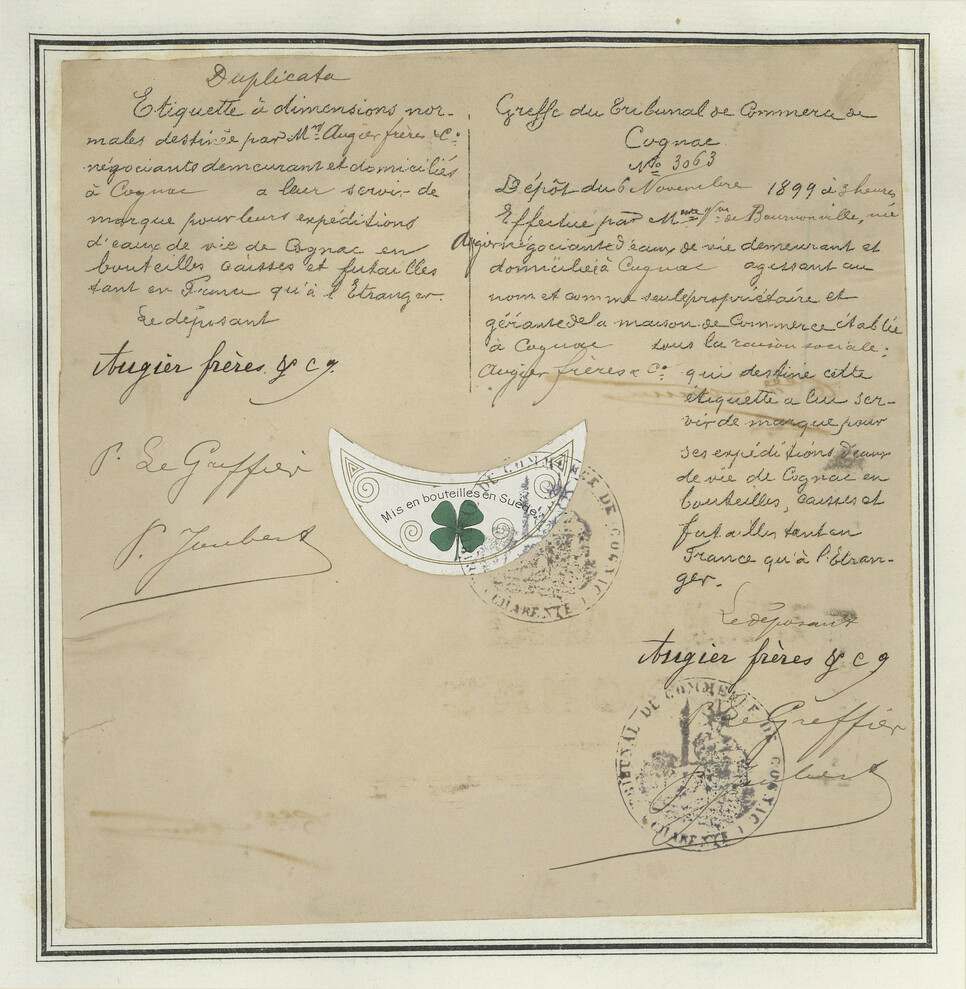 Duplicata
Etiquette à dimensions nor-
males destinée par Mrs Augier frères & Co
négociants demeurant et domiciliés
à Cognac a leur servir de
marque pour leurs expéditions
d'eaux de vie de Cognac en
bouteilles caisses et futailles
tant en France qu'à l'Etranger.
Le déposant
Augier frères & Co
P. Le Greffier
P. Joubert
Greffe du Tribunal de Commerce de
Cognac
No 3063
Dépôt du 6 Novembre 1899 à 3 heures
Effectué par Mme Vve de Bournonville, née
Augier négociante d'eaux de vie demeurant et
domiciliée à Cognac agissant au
nom et comme seule propriétaire et
gérante de la maison de Commerce établie
à Cognac sous la raison sociale:
Augier frères & Co qui destine cette
étiquette a lui ser-
vir de marque pour
ses expéditions d'eaux
de vie de Cognac en
bouteilles, caisses et
futailles tant en
France qu'à l'Etran-
ger.
Le déposant
Augier frères & Co
P. Le Greffier
P. Joubert
Mis en bouteilles en Suède.
TRIBUNAL DE COMMERCE DE COGNAC
(CHARENTE)
TRIBUNAL DE COMMERCE DE COGNAC
(CHARENTE)